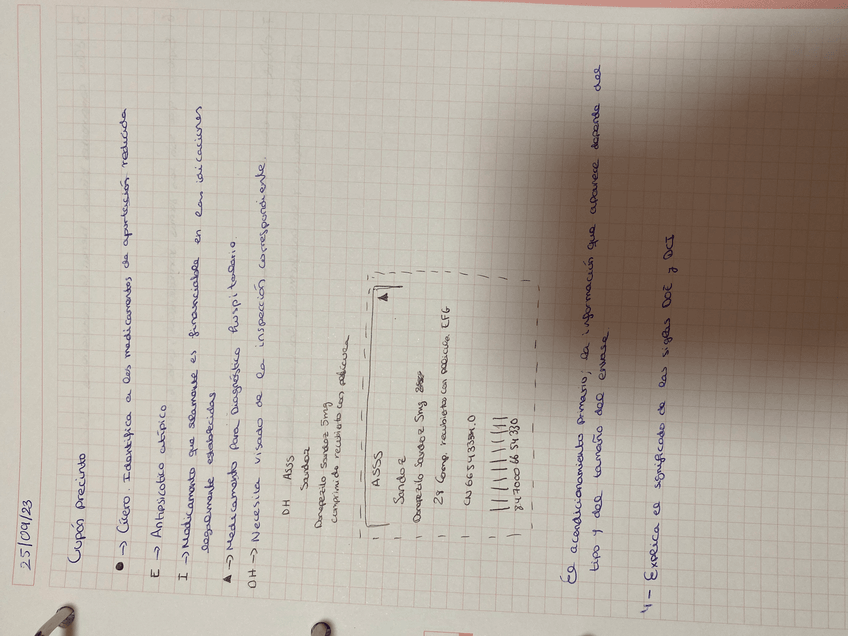 25/09/23
Cupón precinto
● → Cícero Identifica a los medicamentos de aportación reducida
E → Antipsicótico atípico
I → Medicamento que solamente es financiable en las idicaciones
legalmente establecidas
▲ → Medicamento para Diagnóstico hospitalario.
DH → Necesita visado de la inspección correspondiente.
DH ASSS
Sandoz
Donepezilo Sandoz 5mg
comprimido recubierto con película
ASSS ▲
Sandoz
Donepezilo Sandoz 5mg
28 Comp. recubierto con película EFG
CN 66543394.0
847000665433O
El acondicionamiento primario; la información que aparece depende del
tipo y del tamaño del envase
4- Explica el significado de las siglas DOE y DCI